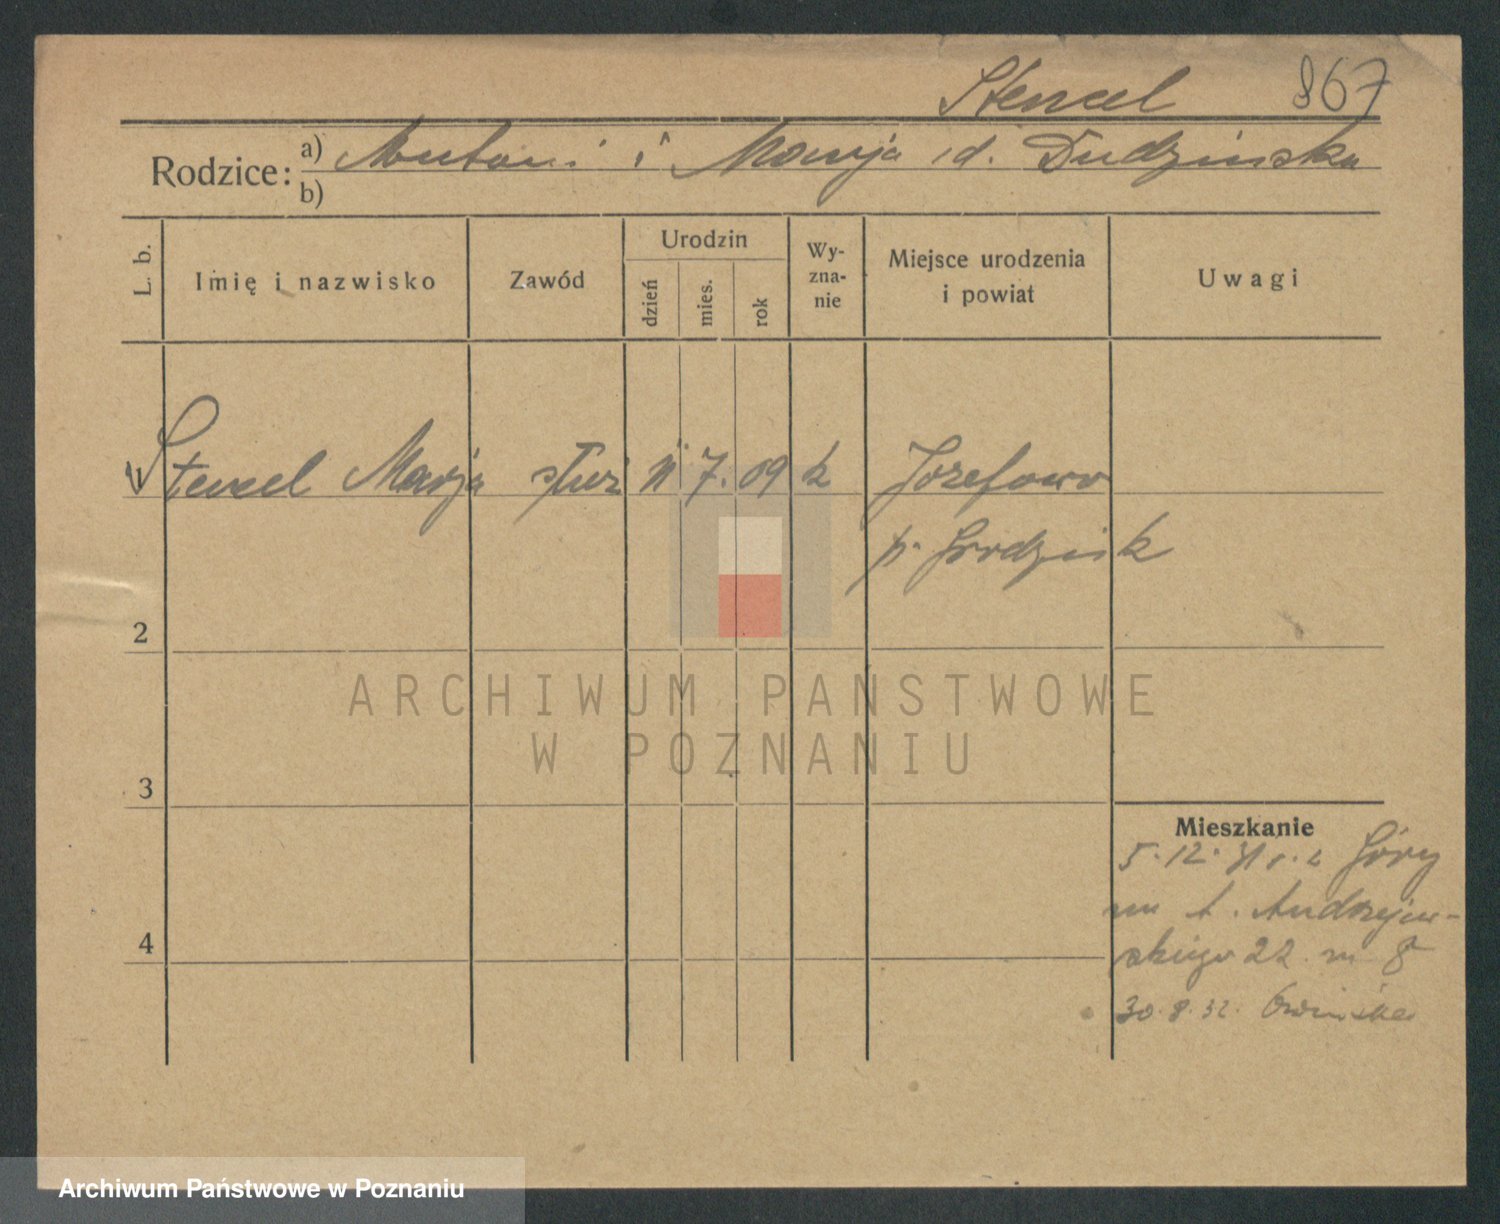 Stencel 867
Rodzice: a) Antoni i Marja d. Dudzinska
b)
L. b. Imię i nazwisko Zawód Urodzin dzień mies. rok Wy-zna-nie Miejsce urodzenia i powiat Uwagi
Stencel Marja służ 11 7. 09 k Jozefowo
p. Grodzisk
2
ARCHIWUM PAŃSTWOWE
W POZNANIU
3
Mieszkanie
5.12.31 Góry
A. Andrzejew-
skiego 22 m 8
4
30.8.32. Owińska
Archiwum Państwowe w Poznaniu